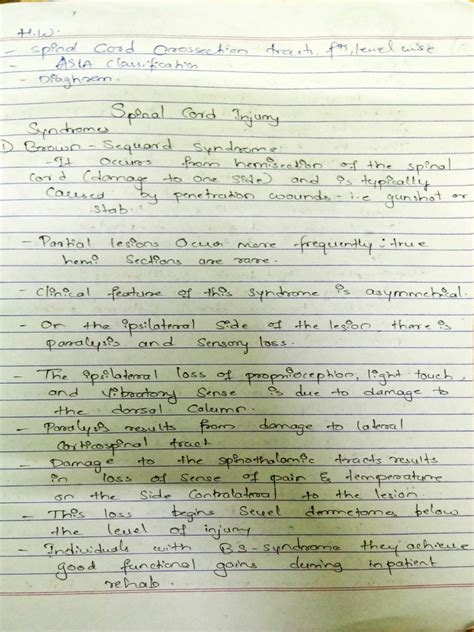 H.W.
- Spinal Cord Crossection tracts, fns, level wise
- ASIA Classification
- Diaghram.
Spinal Cord Injury
Syndromes
1) Brown - Sequard Syndrome:
- It occurs from hemisection of the spinal
cord (damage to one side) and is typically
caused by penetration wounds - i.e gunshot or
stab.
- Partial lesions occur more frequently; true
hemi sections are rare.
- Clinical feature of this syndrome is asymmetrical.
- On the ipsilateral side of the lesion, there is
paralysis and sensory loss.
- The ipsilateral loss of proprioception, light touch,
and vibratory sense is due to damage to
the dorsal column.
- Paralysis results from damage to lateral
corticospinal tract
- Damage to the spinothalamic tracts results
in loss of sense of pain & temperature
on the side contralateral to the lesion.
- This loss begins seuel dermetomes below
the level of injury
- Individuals with B S-syndrome they achieve
good functional gains during inpatient
rehab.